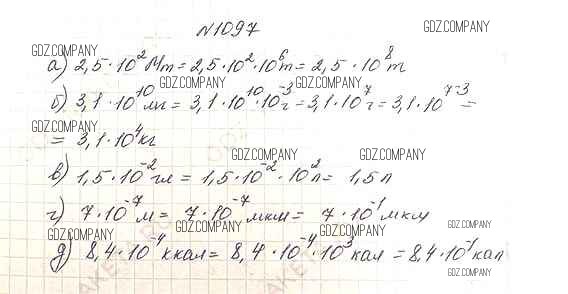 №1097
GDZ.COMPANY
GDZ.COMPANY
а) 2,5·10² Мт = 2,5·10²·10⁶т = 2,5·10⁸т
GDZ.COMPANY GDZ.COMPANY
б) 3,1·10¹⁰мг = 3,1·10¹⁰·10⁻³г = 3,1·10⁷г = 3,1·10⁷⁻³ =
GDZ.COMPANY
= 3,1·10⁴кг
GDZ.COMPANY GDZ.COMPANY
в) 1,5·10⁻²гл = 1,5·10⁻²·10²л = 1,5л
г) 7·10⁻⁷м = 7·10⁻⁷мкм = 7·10⁻¹мкм
GDZ.COMPANY GDZ.COMPANY GDZ.COMPANY
GDZ.COMPANY
д) 8,4·10⁻⁴ккал = 8,4·10⁻⁴·10³кал = 8,4·10⁻¹кал
GDZ.COMPANY